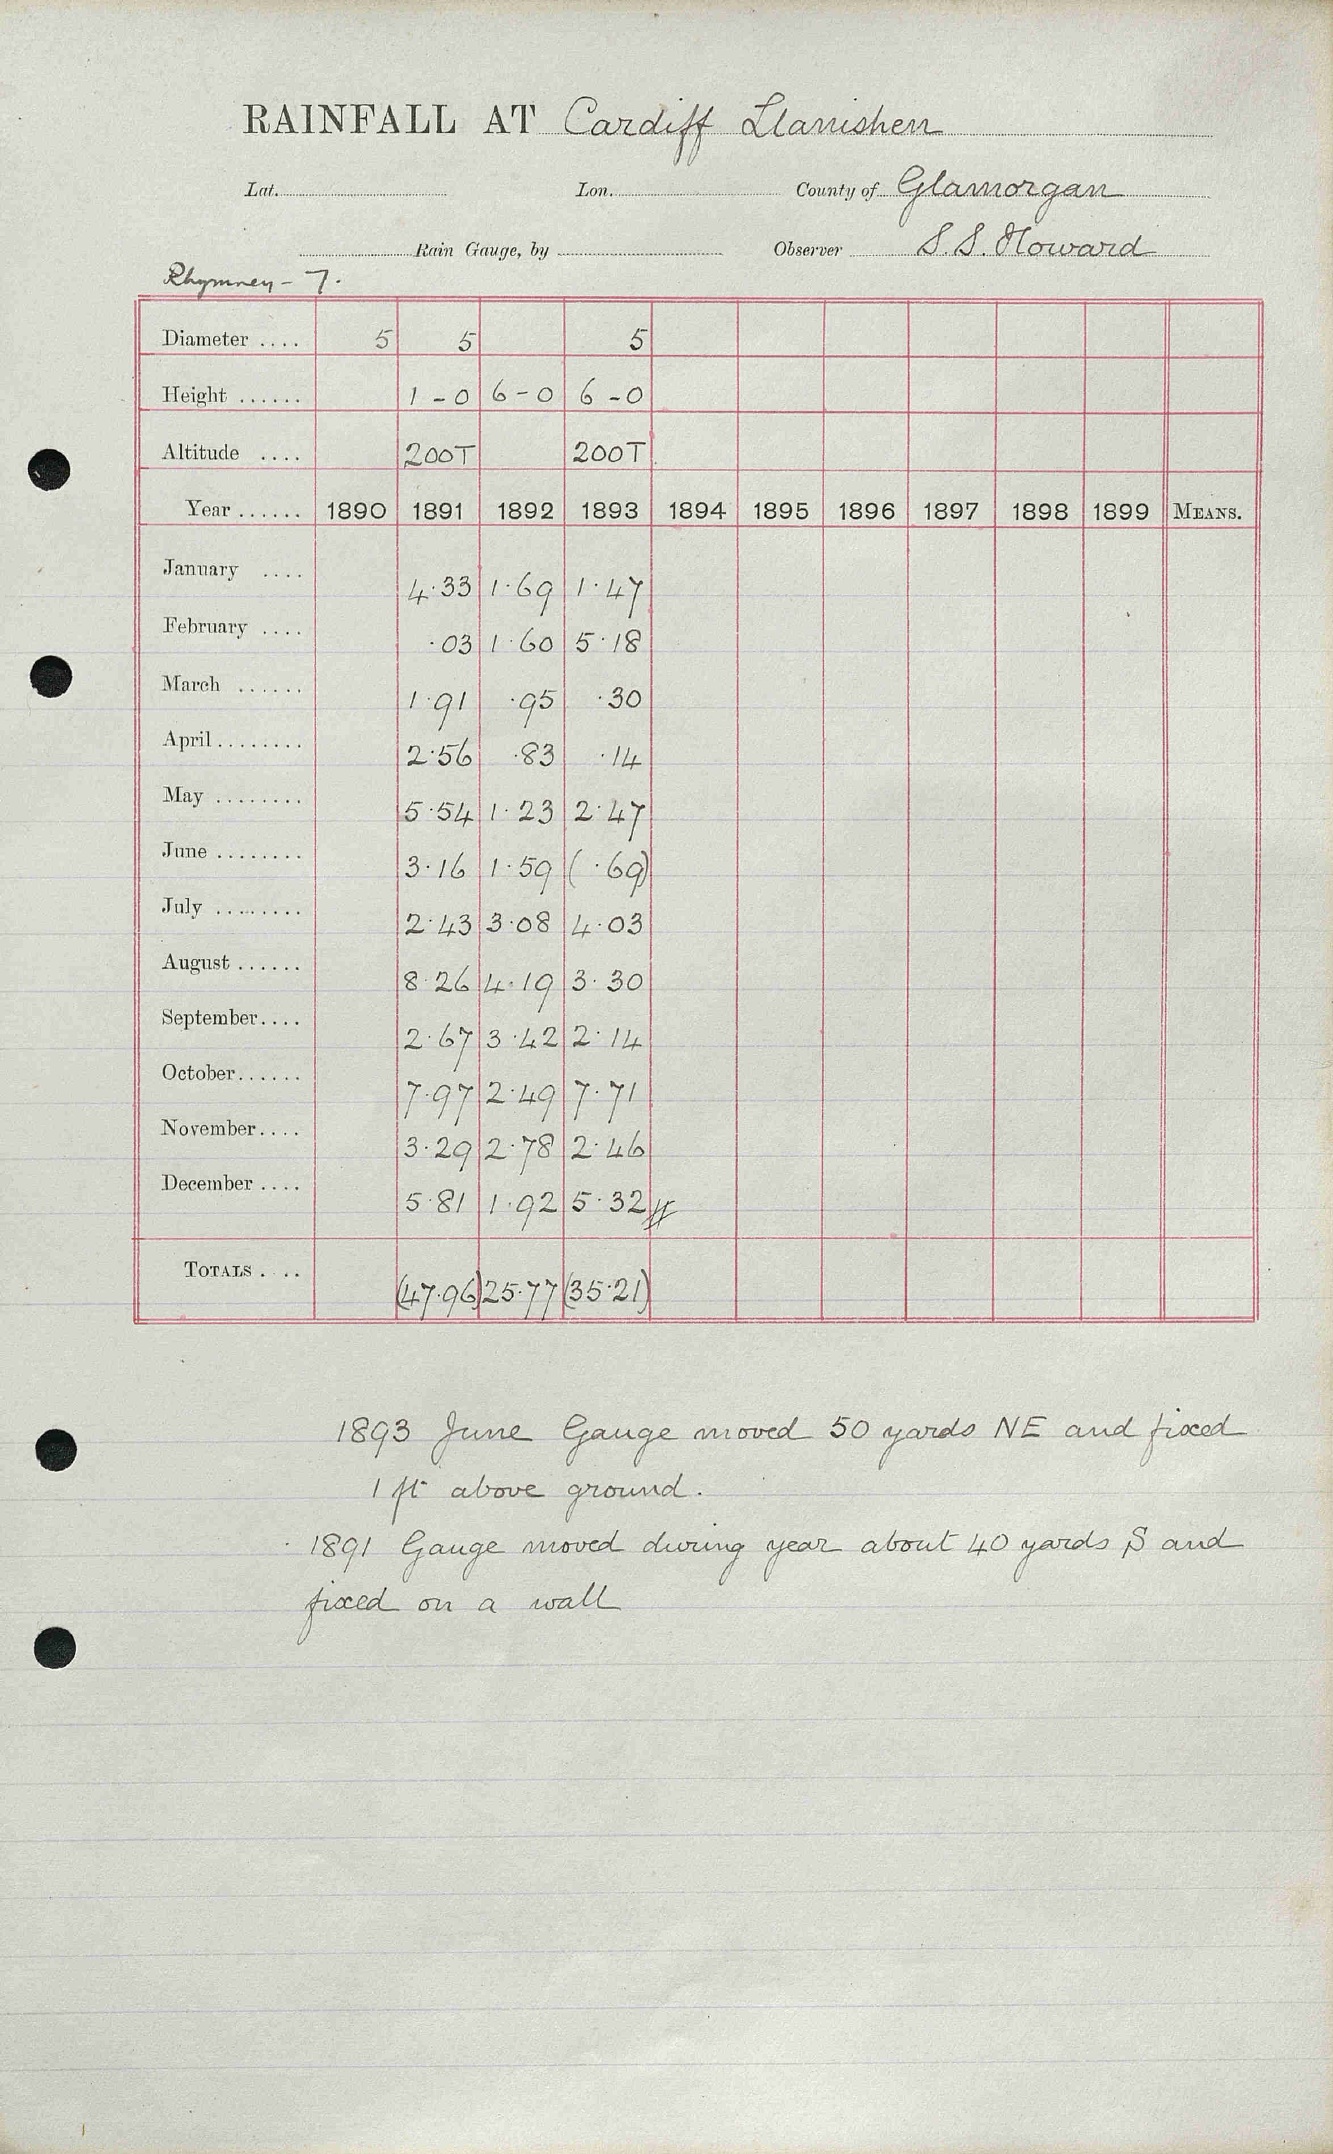 RAINFALL AT Cardiff Llanishen
Lat. Lon. County of Glamorgan
Rain Gauge, by Observer S. S. Howard
Rhymney - 7.
Diameter .... 5 5 5
Height ...... 1-0 6-0 6-0
Altitude .... 200T 200T
Year ...... 1890 1891 1892 1893 1894 1895 1896 1897 1898 1899 MEANS.
January .... 4.33 1.69 1.47
February .... .03 1.60 5.18
March ...... 1.91 .95 .30
April ........ 2.56 .83 .14
May ........ 5.54 1.23 2.47
June ........ 3.16 1.59 (.69)
July ........ 2.43 3.08 4.03
August ...... 8.26 4.19 3.30
September.... 2.67 3.42 2.14
October...... 7.97 2.49 7.71
November.... 3.29 2.78 2.46
December .... 5.81 1.92 5.32
TOTALS .... (47.96) 25.77 (35.21)
1893 June Gauge moved 50 yards NE and fixed
1 ft above ground.
1891 Gauge moved during year about 40 yards S and
fixed on a wall